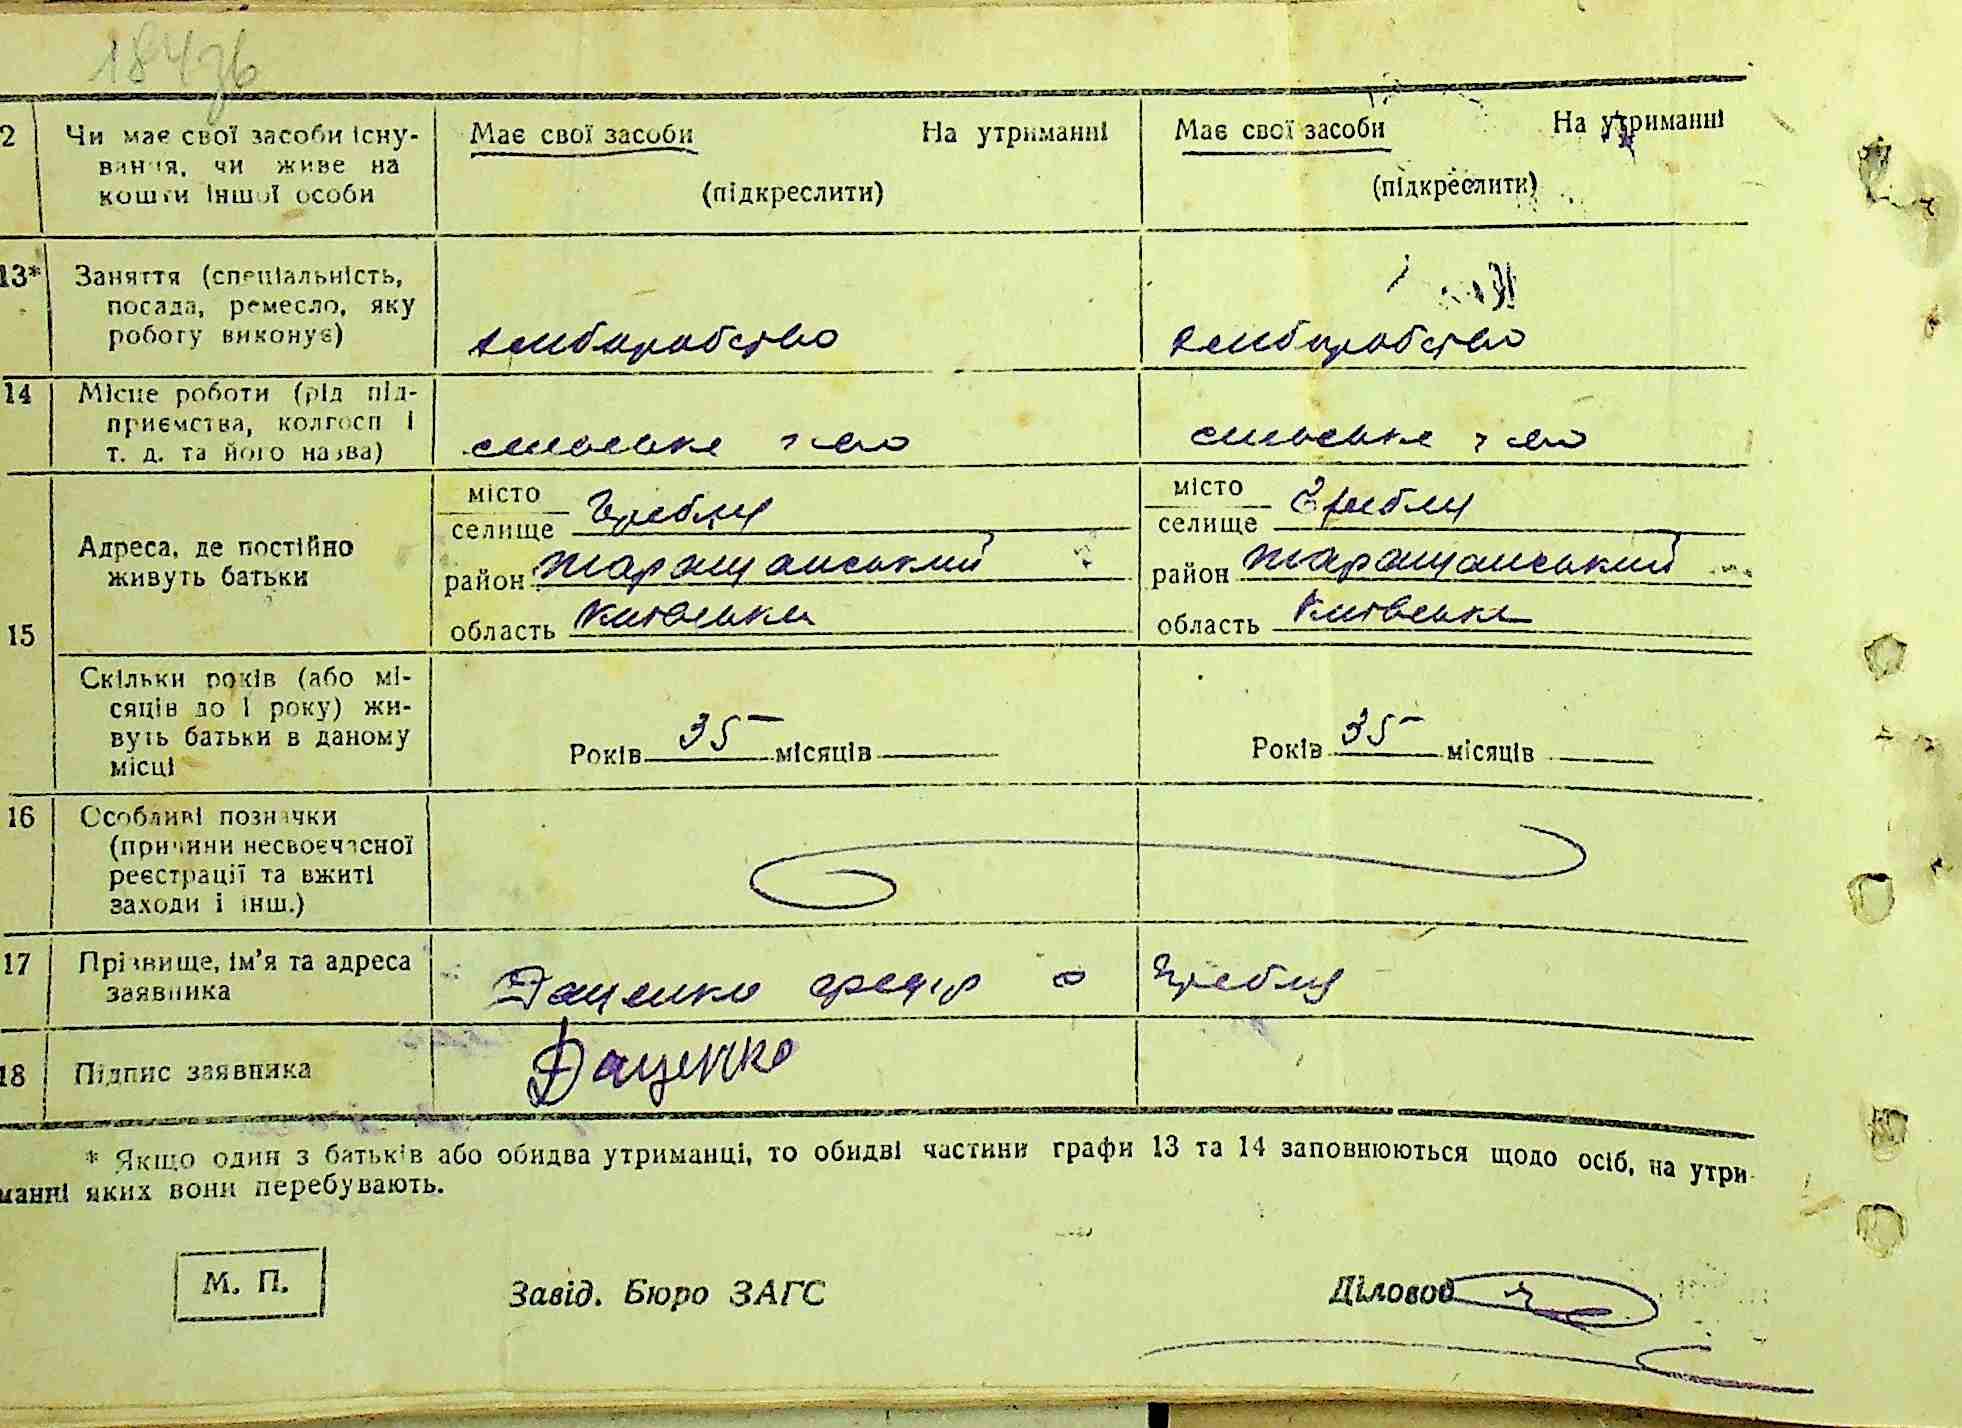 2
Чи має свої засоби існу-
вання, чи живе на
кошти іншої особи
Має свої засоби На утриманні
(підкреслити)
Має свої засоби На утриманні
(підкреслити)
13*
Заняття (спеціальність,
посада, ремесло, яку
роботу виконує)
хліборобство
хліборобство
14
Місце роботи (рід під-
приємства, колгосп і
т. д. та його назва)
сільське г-во
сільське г-во
15
Адреса, де постійно
живуть батьки
місто
селище Гребля
район Таращанський
область Київська
місто
селище Гребля
район Таращанський
область Київська
Скільки років (або мі-
сяців до 1 року) жи-
вуть батьки в даному
місці
Років 35 місяців
Років 35 місяців
16
Особливі позначки
(причини несвоєчасної
реєстрації та вжиті
заходи і інш.)
17
Прізвище, ім'я та адреса
заявника
Даценко Федір с Гребля
18
Підпис заявника
Даценко
* Якщо один з батьків або обидва утриманці, то обидві частини графи 13 та 14 заповнюються щодо осіб, на утри-
манні яких вони перебувають.
М. П.
Завід. Бюро ЗАГС
Діловод